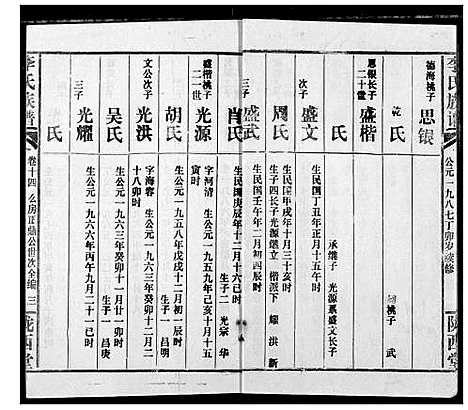 李氏族譜
公元一九八七丁卯岁续修
陇西堂
德海桃子
思银
乾氏
嗣桃子 武
思银长子
二十世
盛楷
氏
生民国丁丑年正月十五午时
承继子 光源系盛文长子
次子
盛文
周氏
生民国甲戌年十月三十亥时
生子四长子光源继立 楷派下 耀 洪 新
生民国壬午年二月初四辰时
三子
盛武
肖氏
生民国庚辰年十二月十六巳时
生子二 光宗 华
盛楷桃子
二一世
光源
字河清 生公元一九五九年己亥十月十五
寅时
胡氏
生公元一九五八年戊戌十二月初一辰时
生子一 昌明
文公次子
光洪
字海蓉 生公元一九六三年癸卯十二月二
十八卯时
吴氏
生公元一九六三年癸卯十一月廿一卯时
生子一 昌庚
三子
光耀
生公元一九六六年丙午九月二十一巳时
氏
李氏族譜
卷十四 么房正鼎公世次全编 三
陇西堂